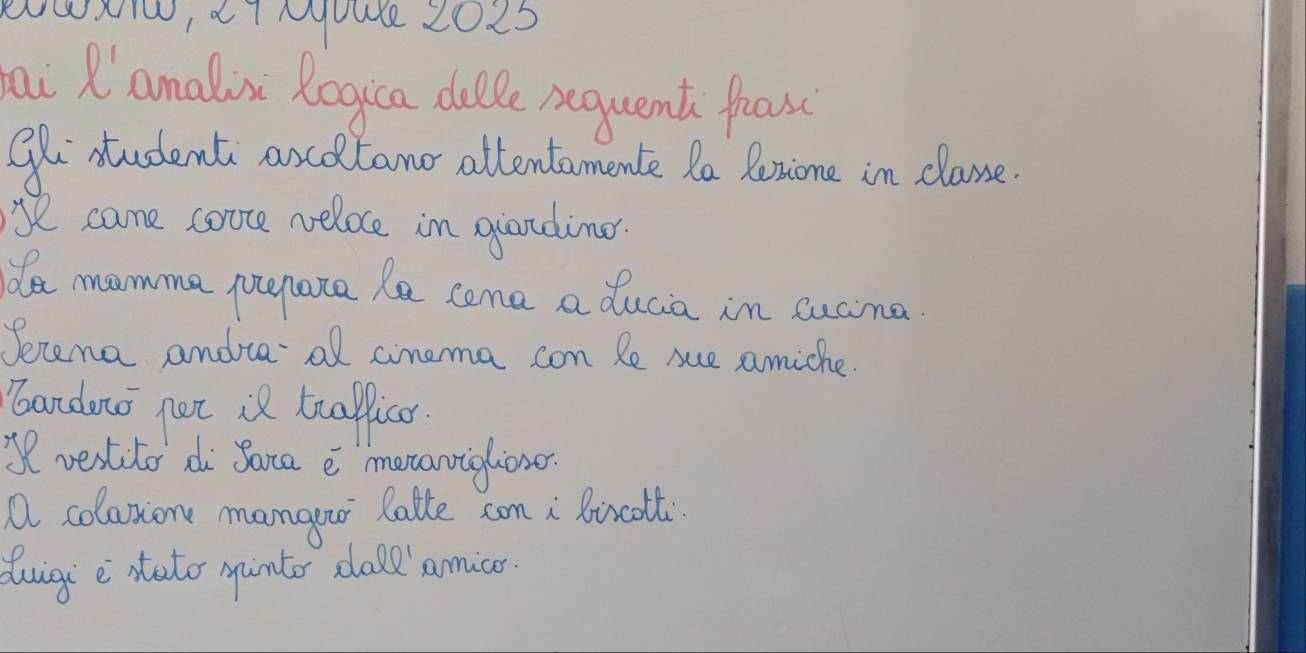 , 29 Aprile 2025
Fai l'analisi logica delle seguenti frasi
Gli studenti ascoltano attentamente la lezione in classe.
Il cane corre veloce in giardino.
La mamma prepara la cena a Lucia in cucina.
Serena andrà al cinema con le sue amiche.
Tarderò per il traffico.
Il vestito di Sara è meraviglioso.
A colazione mangerò latte con i biscotti.
Luigi è stato spinto dall'amico.